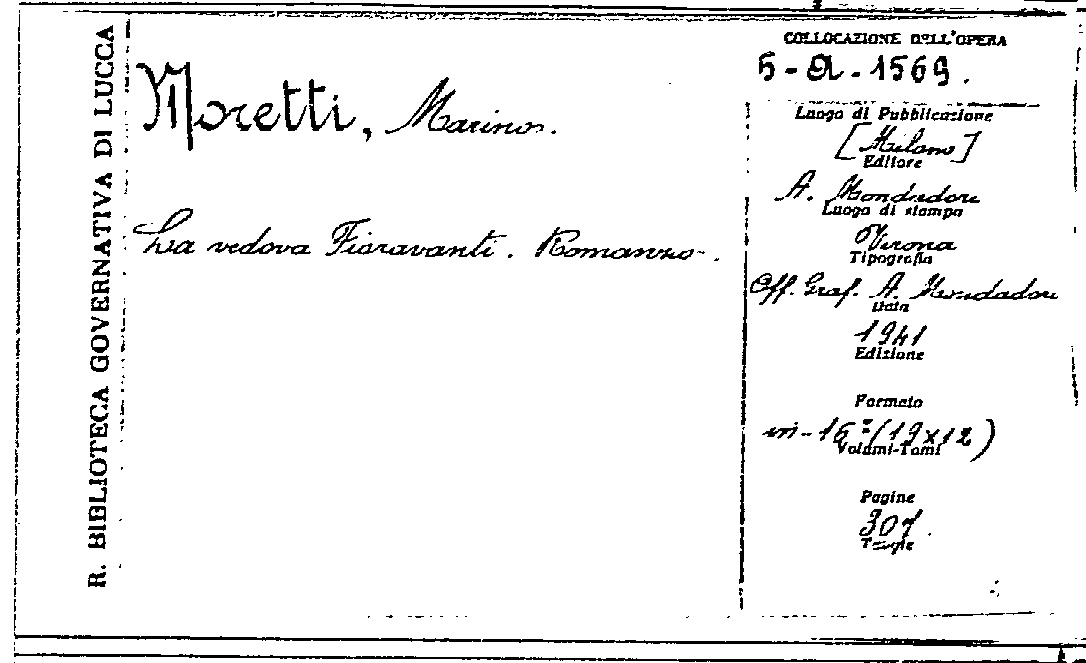 R. BIBLIOTECA GOVERNATIVA DI LUCCA
Moretti, Marino.
La vedova Fioravanti. Romanzo.
COLLOCAZIONE DELL'OPERA
5-A-1569.
Luogo di Pubblicazione
[Milano]
Editore
A. Mondadori
Luogo di stampa
Verona
Tipografia
Off. Graf. A. Mondadori
Data
1941
Edizione
Formato
in-16º (19x12)
Volumi-Tomi
Pagine
307.
Tavole